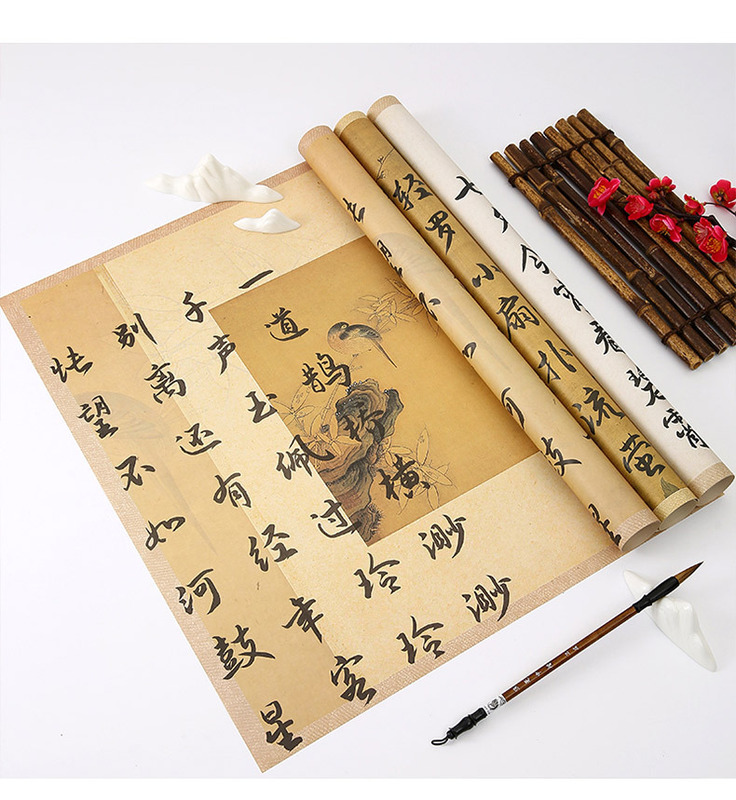 七夕今宵看碧霄
轻罗小扇扑流萤
一道鹊桥横渺渺
千声玉佩过玲玲
别离还有经年客
怅望不如河鼓星